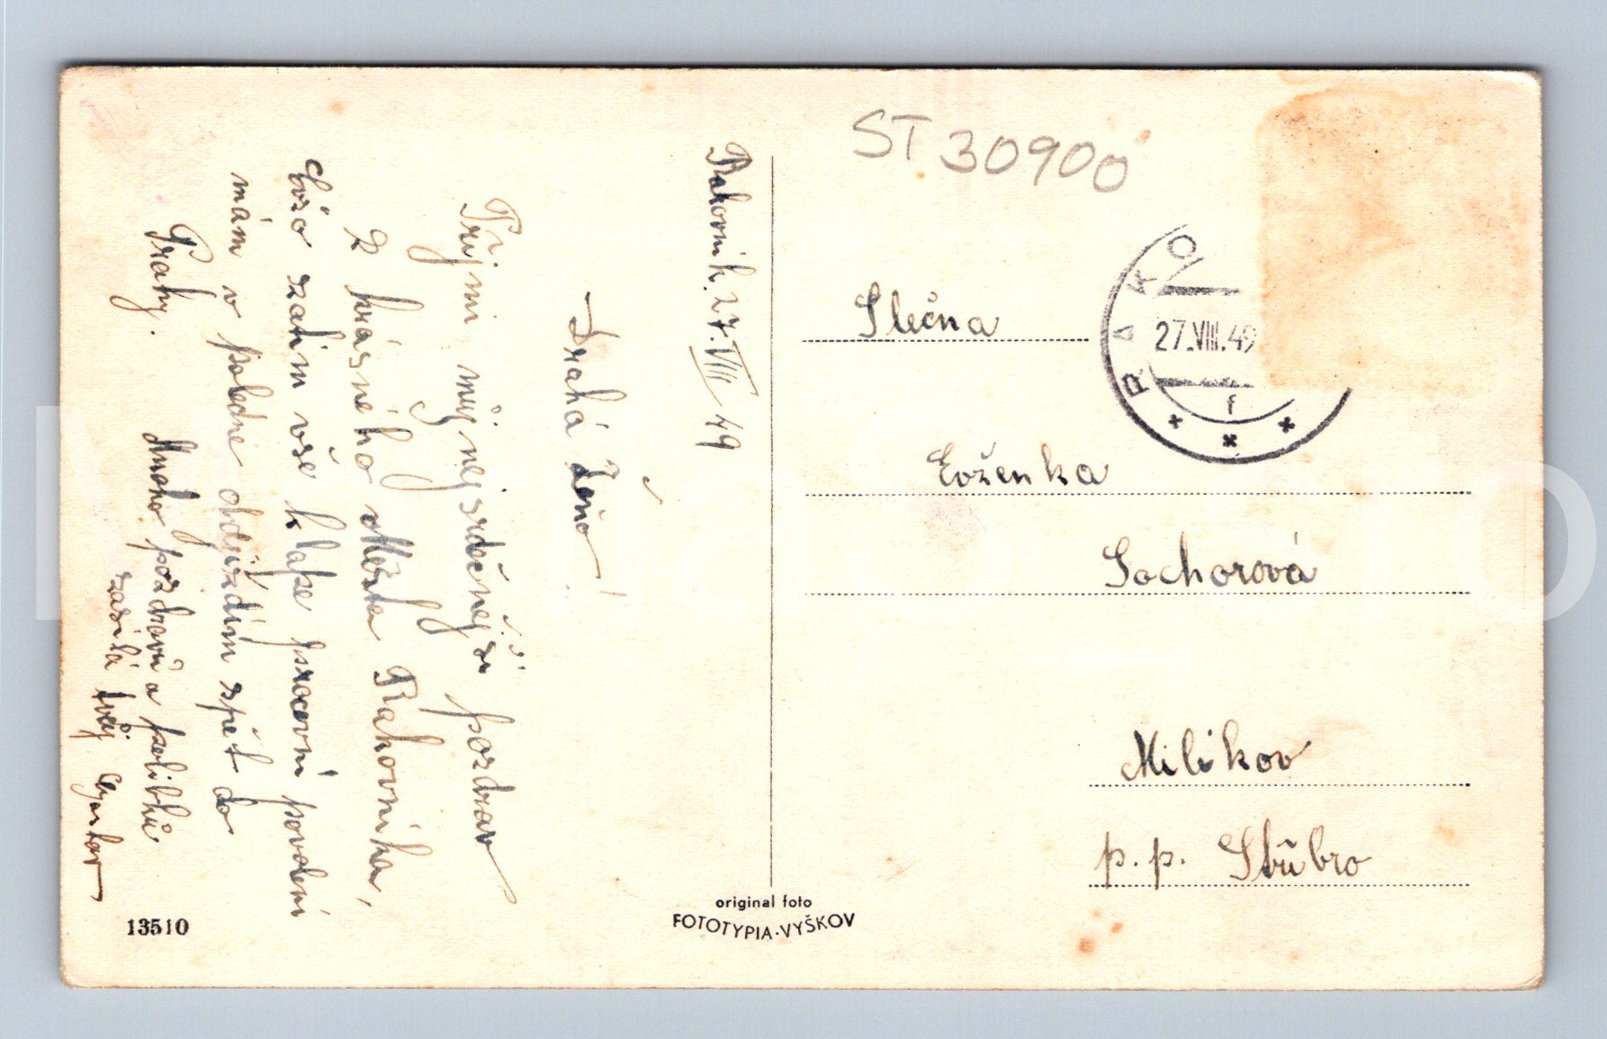 ST 30900
Rakovník 27. VIII 49
Drahá
Přijmi můj nejsrdečnější pozdrav
z krásného města Rakovníka,
zatím vše klape pracovní povolení
mám v poledne odjíždím spět do
Prahy. Mnoho pozdravů a polibků
zasílá tvůj
Slečna
Sochorová
Milíkov
p. p. Stříbro
RAKO
27.VIII.49
f
original foto
FOTOTYPIA-VYŠKOV
13510